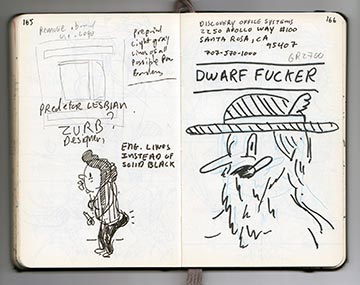 165
Remove board
w. logo
Preprint
light gray
lines of all
possible pan
borders
Predetor Lesbian
?
ZURB
Designer
Eng. Lines
Instead of
Solid Black
166
Discovery Office Systems
2250 Apollo Way #100
Santa Rosa, CA
95407
707-570-1000
GR2700
DWARF FUCKER